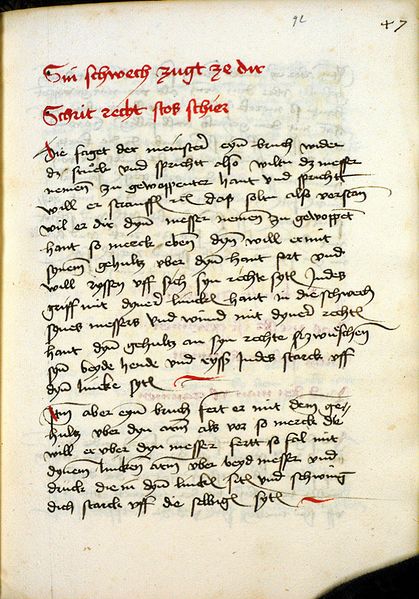 92
47
Sin schwech zugt ze dir
Schrit recht stos schier
Hie saget der meinster eyn bruch wider
dz stuck und sprichtt also wiltu dz messer
nemen zu gewoppenter hant und sprichtt
will er straffl daß soltu also verstan
wil er dir dyn messer nemen zu gewoppet
hant so merck eben dyn will er mit
synem gehultz uber dyn hant fert und
will ryssen uff sich syn rechte sytl Indes
griff mit dyner lincken hant in die schwech
synes messers und wind mit dyner rechtl
hant dyn gehultz an syn rechte zwuschen
syn beyde hende und ryss Indes starck uff
dyn lincke sytl
aber eyn bruch fert er mit dem ge
hultz uber dyn arm als vor so merck die
will er uber dyn messer fertt so fal mit
dynem lincken arm uber beyd messer und
druck die in dyn linckl sytl und schwing
dich starck uff die selbigl sytl